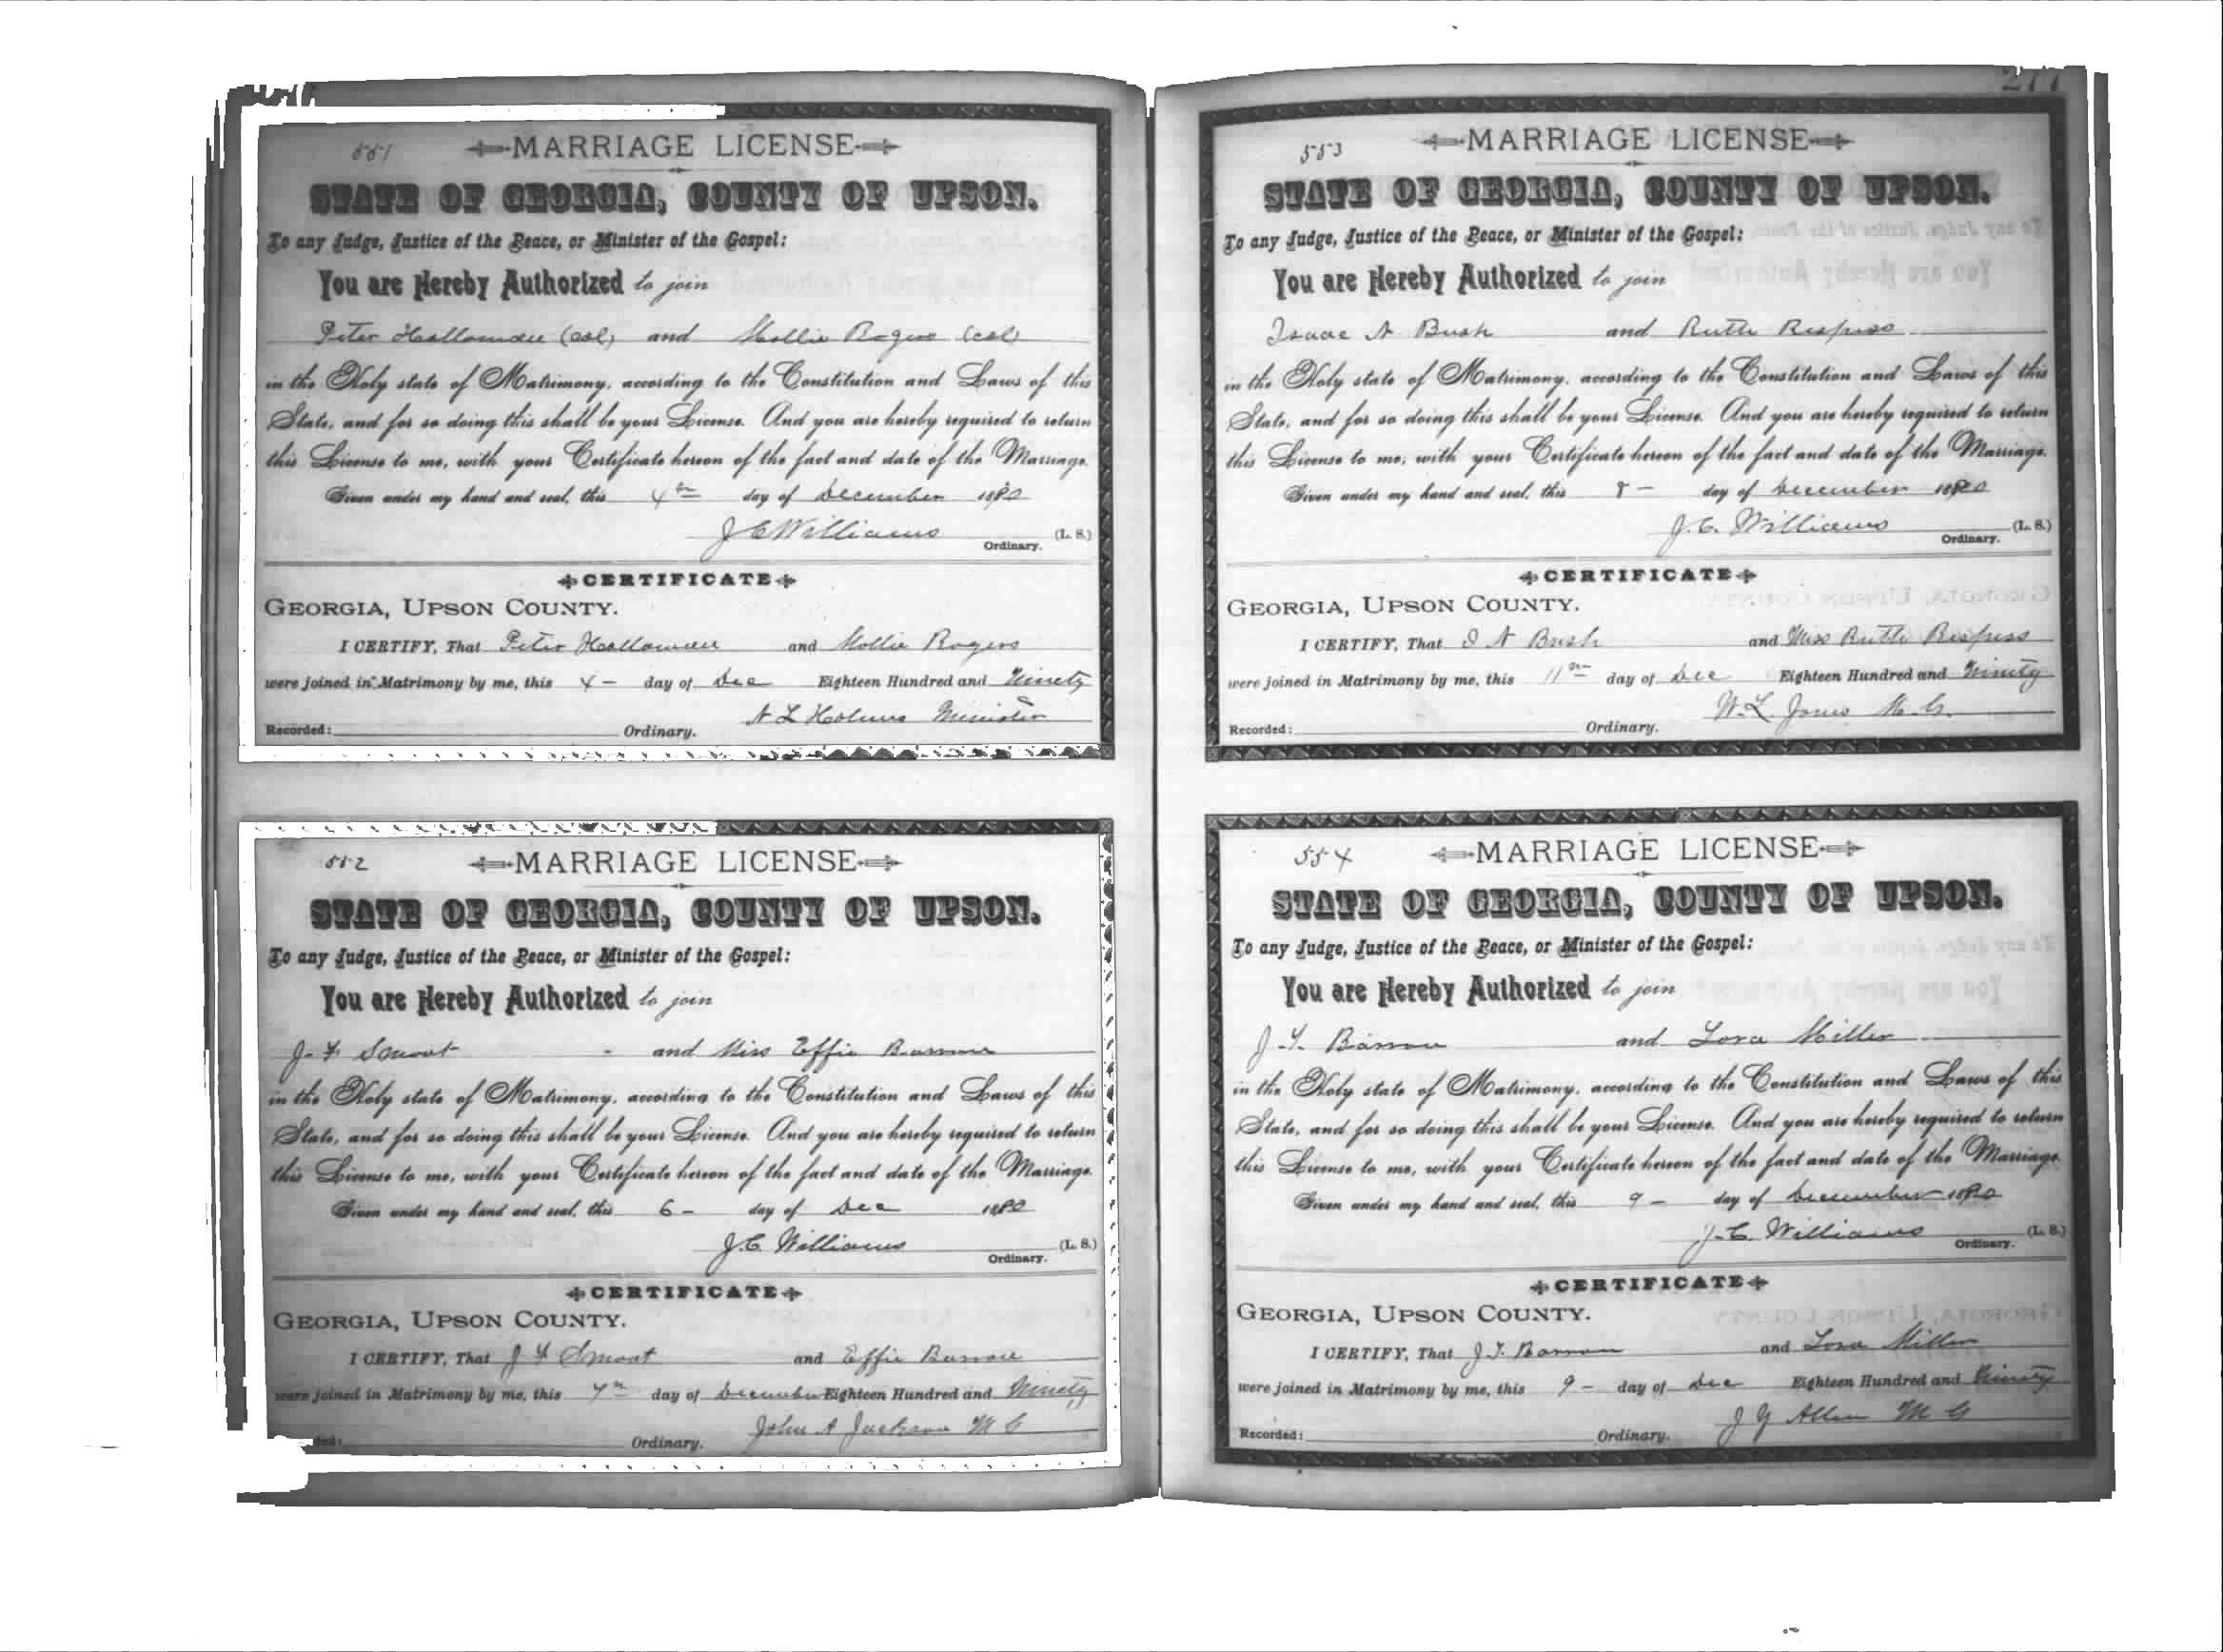 551
MARRIAGE LICENSE
STATE OF GEORGIA, COUNTY OF UPSON.
To any Judge, Justice of the Peace, or Minister of the Gospel:
You are Hereby Authorized to join
Peter (col) and Mollie (col)
in the Holy state of Matrimony, according to the Constitution and Laws of this
State, and for so doing this shall be your License. And you are hereby required to return
this License to me, with your Certificate hereon of the fact and date of the Marriage.
Given under my hand and seal, this 4th day of December 1890
J C Williams (L. S.)
Ordinary.
CERTIFICATE
GEORGIA, UPSON COUNTY.
I CERTIFY, That Peter and Mollie Rogers
were joined in Matrimony by me, this 4 - day of Dec Eighteen Hundred and Ninety
Minister
Recorded: Ordinary.
552
MARRIAGE LICENSE
STATE OF GEORGIA, COUNTY OF UPSON.
To any Judge, Justice of the Peace, or Minister of the Gospel:
You are Hereby Authorized to join
and Miss Effie
in the Holy state of Matrimony, according to the Constitution and Laws of this
State, and for so doing this shall be your License. And you are hereby required to return
this License to me, with your Certificate hereon of the fact and date of the Marriage.
Given under my hand and seal, this 6 - day of Dec 1890
J. C. Williams (L. S.)
Ordinary.
CERTIFICATE
GEORGIA, UPSON COUNTY.
I CERTIFY, That and Effie
were joined in Matrimony by me, this 7th day of December Eighteen Hundred and Ninety
John A Jackson
Ordinary.
277
553
MARRIAGE LICENSE
STATE OF GEORGIA, COUNTY OF UPSON.
To any Judge, Justice of the Peace, or Minister of the Gospel:
You are Hereby Authorized to join
Isaac N Bush and Ruth Respess
in the Holy state of Matrimony, according to the Constitution and Laws of this
State, and for so doing this shall be your License. And you are hereby required to return
this License to me, with your Certificate hereon of the fact and date of the Marriage.
Given under my hand and seal, this 8 - day of December 1890
J. C. Williams (L. S.)
Ordinary.
CERTIFICATE
GEORGIA, UPSON COUNTY.
I CERTIFY, That I N Bush and Miss Ruth Respess
were joined in Matrimony by me, this 11th day of Dec Eighteen Hundred and Ninety
W. L. Jones M. G.
Recorded: Ordinary.
554
MARRIAGE LICENSE
STATE OF GEORGIA, COUNTY OF UPSON.
To any Judge, Justice of the Peace, or Minister of the Gospel:
You are Hereby Authorized to join
and Lora Miller
in the Holy state of Matrimony, according to the Constitution and Laws of this
State, and for so doing this shall be your License. And you are hereby required to return
this License to me, with your Certificate hereon of the fact and date of the Marriage.
Given under my hand and seal, this 9 - day of December 1890
J. C. Williams (L. S.)
Ordinary.
CERTIFICATE
GEORGIA, UPSON COUNTY.
I CERTIFY, That and Lora Miller
were joined in Matrimony by me, this 9 - day of Dec Eighteen Hundred and Ninety
J Y Allen M G
Recorded: Ordinary.